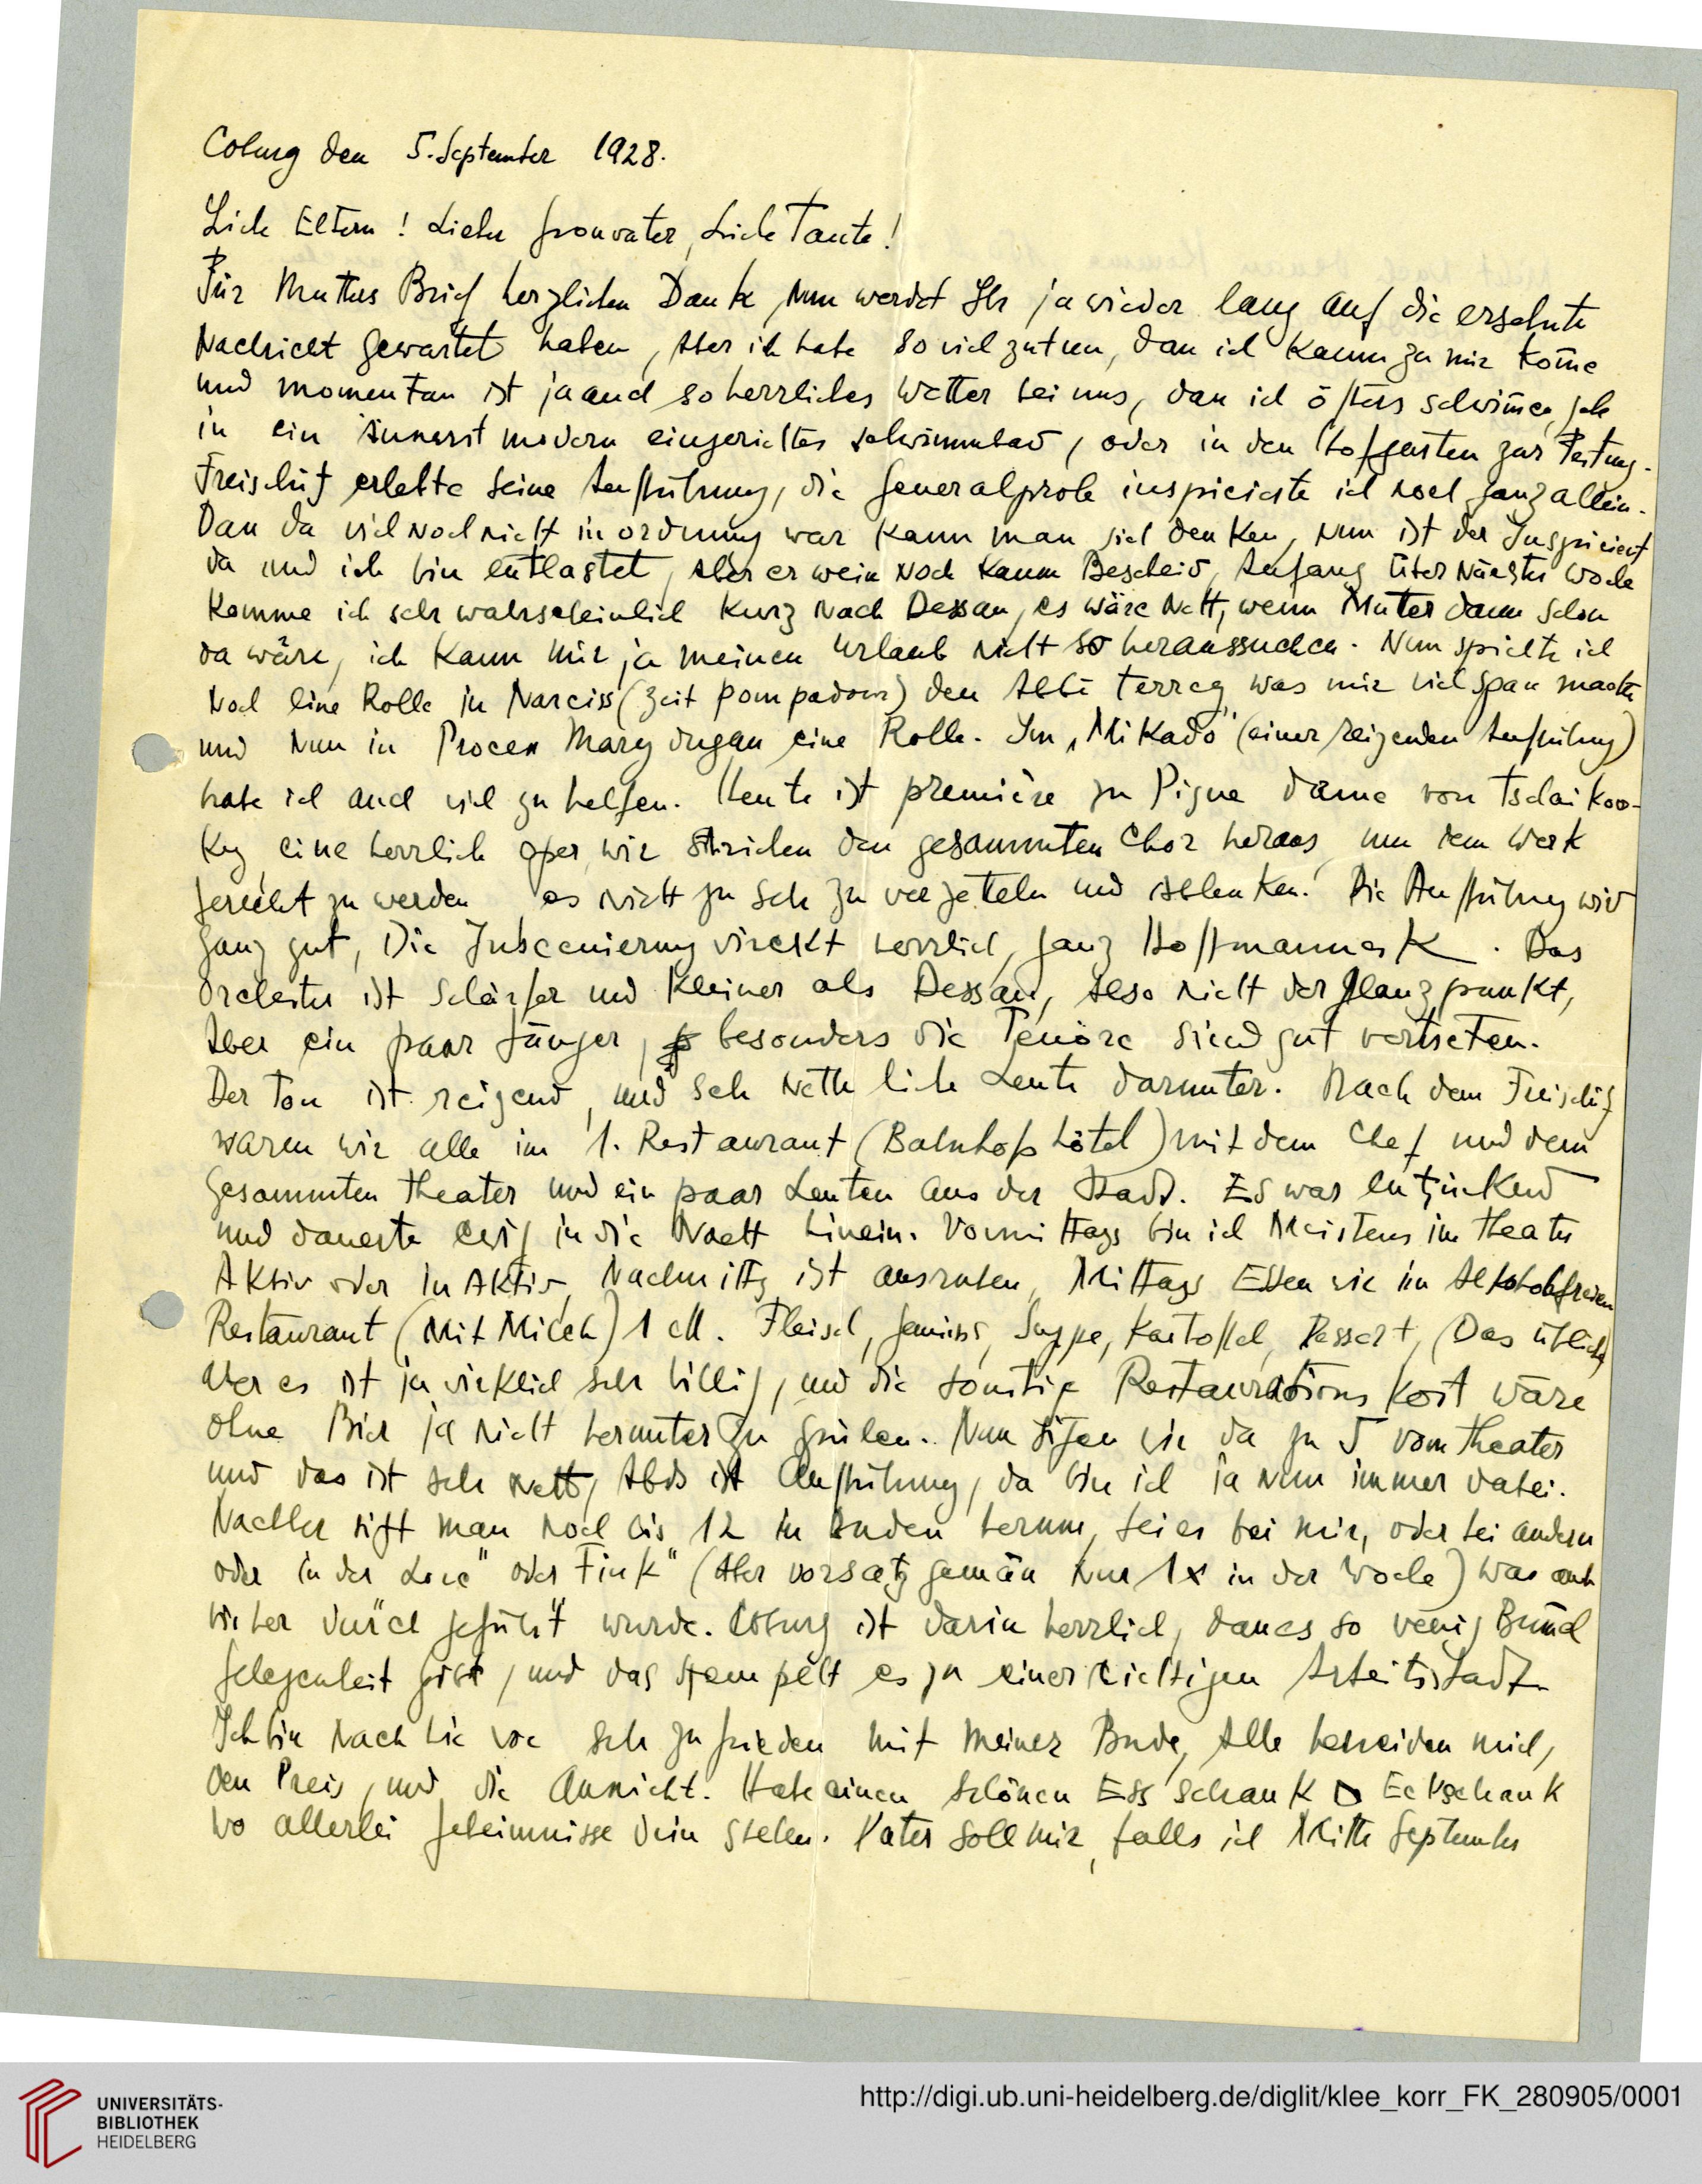 Coburg den 5. September 1928.
Liebe Eltern! Lieber Grossvater, Liebe Tante!
Für Mutters Brief herzlichen Dank, Nun werdet Ihr ja wieder lang auf die ersehnte
Nachricht gewartet haben, Aber ich habe so viel zutun, dass ich kaum zu mir kom̄e
und momentan ist ja auch so herrliches Wetter bei uns, dass ich öfters schwim̄en geh
in ein äusserst modern eingerichtes Schwimmbad, oder in den Hofgarten zur Festung.
Freischütz erlebte seine Aufführung, die Generalprobe inspicierte ich noch ganz allein.
Dass da viel noch nicht in ordnung war kann man sich denken, nun ist der Inspicient
da und ich bin entlastet, Aber er weiss noch kaum Bescheid, Anfang über Nächster Woche
komme ich sehr wahrscheinlich kurz nach Dessau, es wäre nett, wenn Mutter dann schon
da wäre, ich kann mir ja meinen Urlaub nicht so heraussuchen. Nun spielte ich
noch eine Rolle in Narciss (Zeit Pompadour) den Abbé Terray, was mir viel Spass machte
und Nun in Process Mary dugan eine Rolle. Im „Mikado" (einer reizenden Aufführung)
habe ich auch viel zu helfen. Heute ist première zu Pique Dame von Tschaikow-
ky, eine herrlich oper, wir strichen den gesammten Chor heraus, um dem Werk
gerecht zu werden es nicht zu sehr zu verzetteln und ablenken. Die Aufführung wird
ganz gut, Die Inscenierung direkt herrlich, ganz Hoffmannesk. Das
Orchester ist Schärfer und kleiner als Dessau, Also nicht der Glanzpunkt,
Aber ein paar Sänger, besonders die Tenöre sind gut vertreten.
Der Ton ist reizend, und sehr nette liebe Leute darunter. Nach dem Freischütz
waren wir alle im 1. Restaurant (Bahnhofs hôtel) mit dem Chef und dem
Gesammten Theater und ein paar Leuten aus der Stadt. Es war entzückend
und dauerte ewig in die Nacht hinein. Vormittags bin ich Meistens im Theater
Aktiv oder InAktiv, Nachmittg ist ausruhen, Mittags Essen wir im Alkoholfreien
Restaurant (Mit Milch) 1 M. Fleisch, Gemüse, Suppe, Kartoffel, Dessert, (Das übliche)
Aber es ist ja wirklich sehr billig, und die sonstige Restaurations kost wäre
ohne Bier ja nicht herunter zu spülen. Nun sitzen wir da zu 5 vom Theater
und das ist sehr nett, Abds ist Aufführung, da bin ich ja nun immer dabei.
Nachher sitzt man noch bis 12 in Buden herum, sei es bei mir, oder bei andern
oder in der " oder Fink" (Aber vorsatz gemäss nur 1x in der Woche) was auch
bisher durch geführt wurde. Coburg ist darin herrlich, dass es so wenig Bum̄el
gelegenheit gibt, und das stempelt es zu einer richtigen Arbeitsstadt.
Ich bin nach wie vor sehr zufrieden mit meiner Bude, Alle beneiden mich,
den Preis, und die Aussicht. Habe einen schönen Essschrank Eckschank
wo allerlei Geheimnisse drin stehen. Vater soll mir, falls ich Mitte September
UNIVERSITÄTS-
BIBLIOTHEK
HEIDELBERG
http://digi.ub.uni-heidelberg.de/diglit/klee_korr_FK_280905/0001